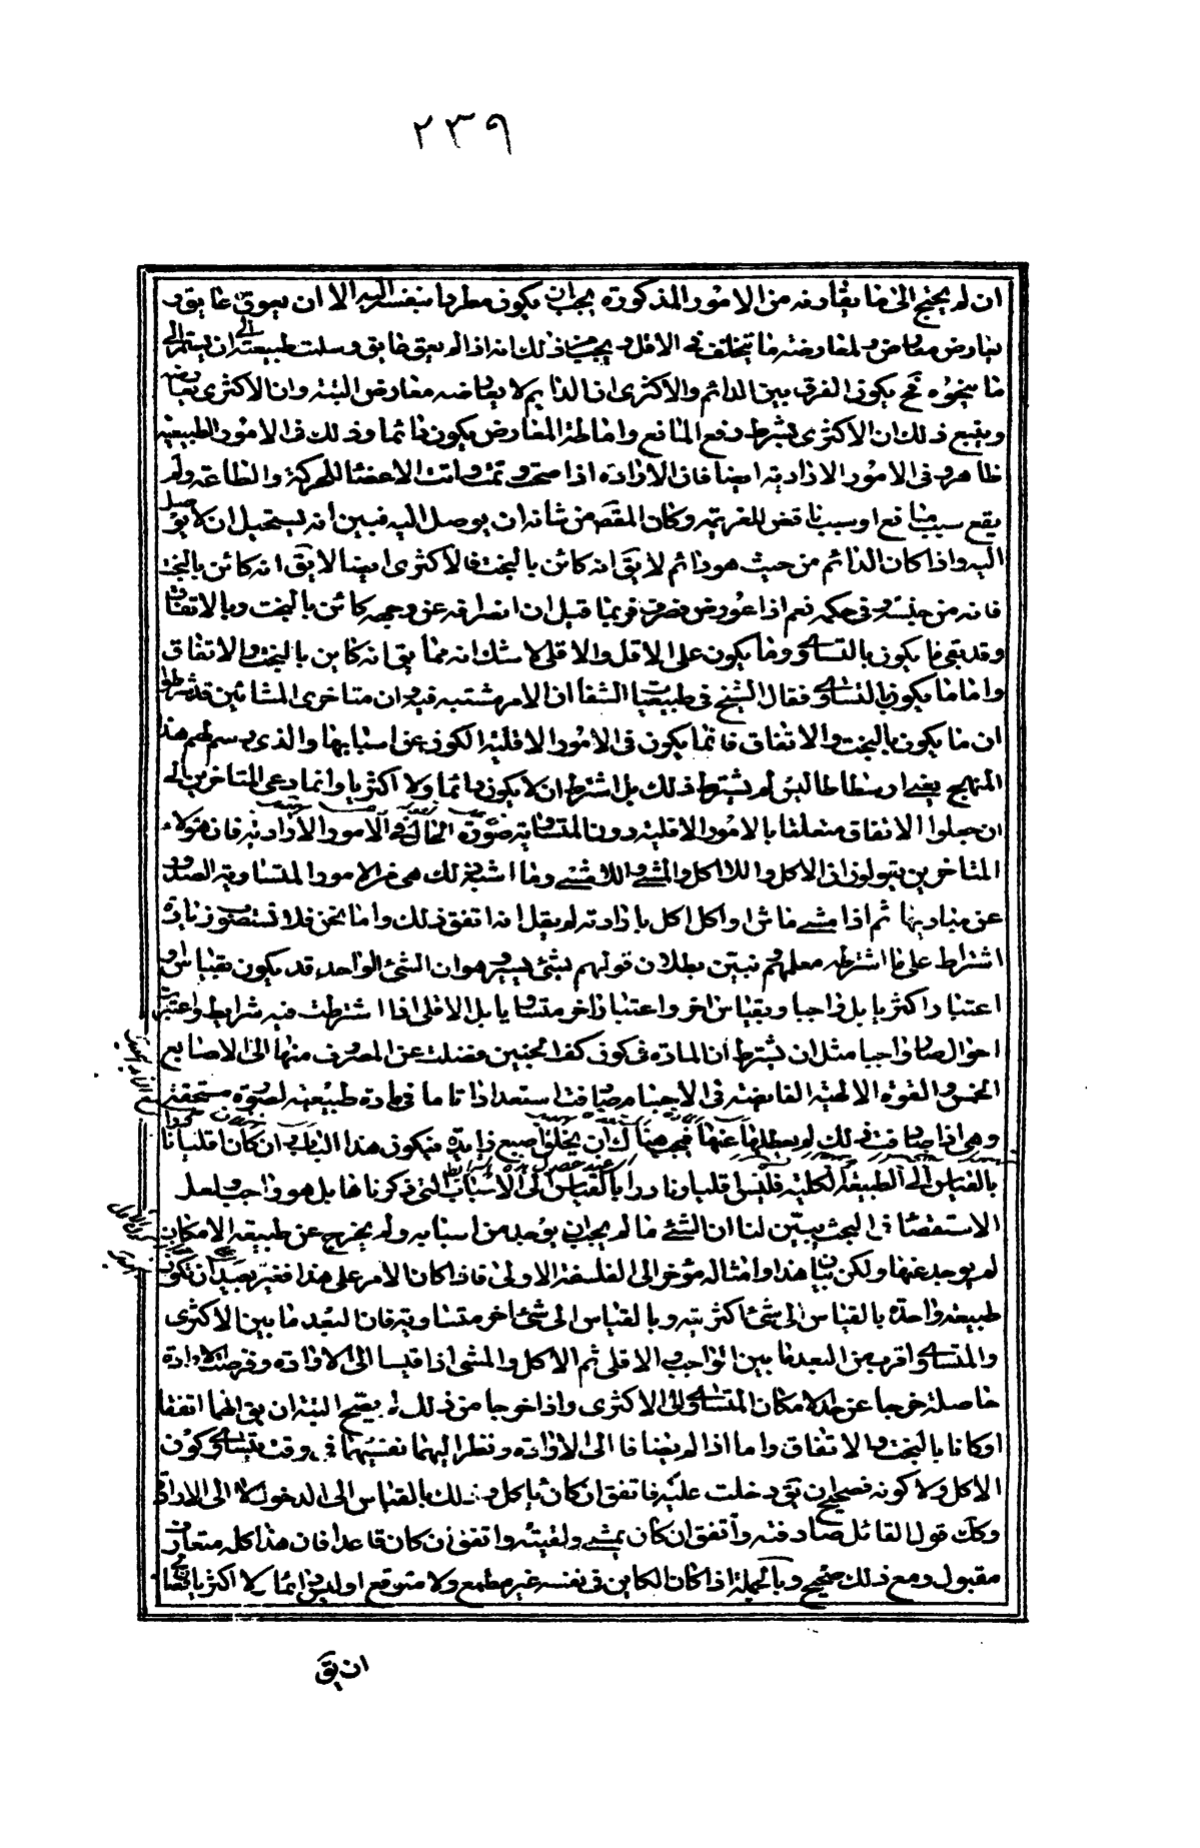 ٢٣٩
ان لم يحتج الى ما يقارنه من الامور المذكورة يجب ان يكون مطردا بنفسه اليه الا ان يعوق عايق و
يعارض معارض و لمعارضته ما يتخلف في الاقل و يجب من ذلك انه اذا لم يعق عايق و سلمت طبيعته ان يستمر الى
ما ينحوه فح يكون الفرق بين الدائم والاكثرى ان الدايم لا يعارضه معارض البتة وان الاكثرى يعارضه
ويتبع ذلك ان الاكثرى بشرط دفع المانع واماطة المعارض يكون دائما وذلك فى الامور الطبيعية
ظاهر و فى الامور الارادية ايضا فان الارادة اذا صحت و تمت واتت الاعضا للحركة والطاعة ولم
يقع سبب مانع او سبب ناقض للعزيمة وكان المقصد من شانه ان يوصل اليه فبين انه يستحيل ان لا يوصل
اليه واذا كان الدائم من حيث هو دائم لا يق انه كائن بالبخت فالاكثرى ايضا لا يق انه كائن بالبخت
فانه من جنسه و فى حكمه نعم اذا عورض فصرف فربما قيل ان انصرافه عن وجهه كائن بالبخت وبالاتفاق
وقد بقى ما يكون بالتساوى وما يكون على الاقل والاقلى لا شك انه مما يق انه كاين بالبخت والاتفاق
واما ما يكون بالتساوى فقال الشيخ فى طبيعيات الشفا ان الامر مشتبه فيه وان متاخرى المشائين قد شرطوا
ان ما يكون بالبخت والاتفاق فانما يكون فى الامور الاقلية الكون عن اسبابها والذى رسم لهم هذا
المنهج يعنى ارسطاطاليس لم يشترط ذلك بل اشترط ان لا يكون دائما ولا اكثريا وانما دعى المتاخرين الى
ان جعلوا الاتفاق متعلقا بالامور الاقلية دون المتساوية صورة الحال فى الامور الارادية فان هؤلاء
المتاخرين يقولون ان الاكل واللا اكل والمشى واللا مشى وما اشبه ذلك هى من الامور المتساوية الصدور
عن مباديها ثم اذا مشى ماش او اكل اكل بارادته لم يقل انه اتفق ذلك واما نحن فلا نستصوب زيادة
اشتراط على ما اشترطه معلمهم و نبين بطلان قولهم بشئ يسير و هو ان الشئ الواحد قد يكون بقياس و
اعتبار اكثريا بل واجبا وبقياس اخر واعتبار اخر متساويا بل الاقلى اذا اشترطت فيه شرايط واعتبرت
احوال صار واجبا مثل ان يشترط ان المادة فى كون كف الجنين فضلت عن المصروف منها الى الاصابع
الخمس والقوة الالهية الفايضة فى الاجسام صادفت استعدادا تاما فى مادة طبيعية لصورة مستحقة
وهى اذا صادفت ذلك لم يعطلها عنها فيجب هناك ان يخلق اصبع زايدة فيكون هذا الباب ان كان اقليا نادرا
بالقياس الى الطبيعة الكلية فليس اقليا ونادرا بالقياس الى الاسباب التى ذكرناها بل هو واجب ولعل
الاستقصا فى البحث يبين لنا ان الشئ ما لم يجب ان يوجد من اسبابه ولم يخرج عن طبيعة الامكان
لم يوجد عنها ولكن بيان هذا وامثاله مؤخر الى الفلسفة الاولى فاذا كان الامر على هذا فغير بعيد ان تكون
طبيعة واحدة بالقياس الى شئ اكثرية و بالقياس الى شئ اخر متساوية فان البعد ما بين الاكثرى
والمتساوى اقرب من البعد ما بين الواجب و الاقلى ثم الاكل والمشى اذا قيسا الى الارادة و فرضت الارادة
حاصلة خرجا عن حد الامكان المتساوى الى الاكثرى واذا خرجا من ذلك لم يصح البتة ان يق انهما اتفقا
او كانا بالبخت والاتفاق واما اذا لم يضافا الى الارادة ونظر اليهما نفسيهما فى وقت يتساوى كون
الاكل ولا كونه فصحيح ان يق دخلت عليه فاتفق ان كان ياكل وذلك بالقياس الى الدخول لا الى الارادة
وكك قول القائل صادفته واتفق ان كان يمشى ولقيته واتفق ان كان قاعدا فان هذا كله متعارف
مقبول ومع ذلك صحيح وبالجملة اذا كان الكاين فى نفسه غير مطمع ولا متوقع او ليس دائما و لا اكثريا فصالح
ان يق